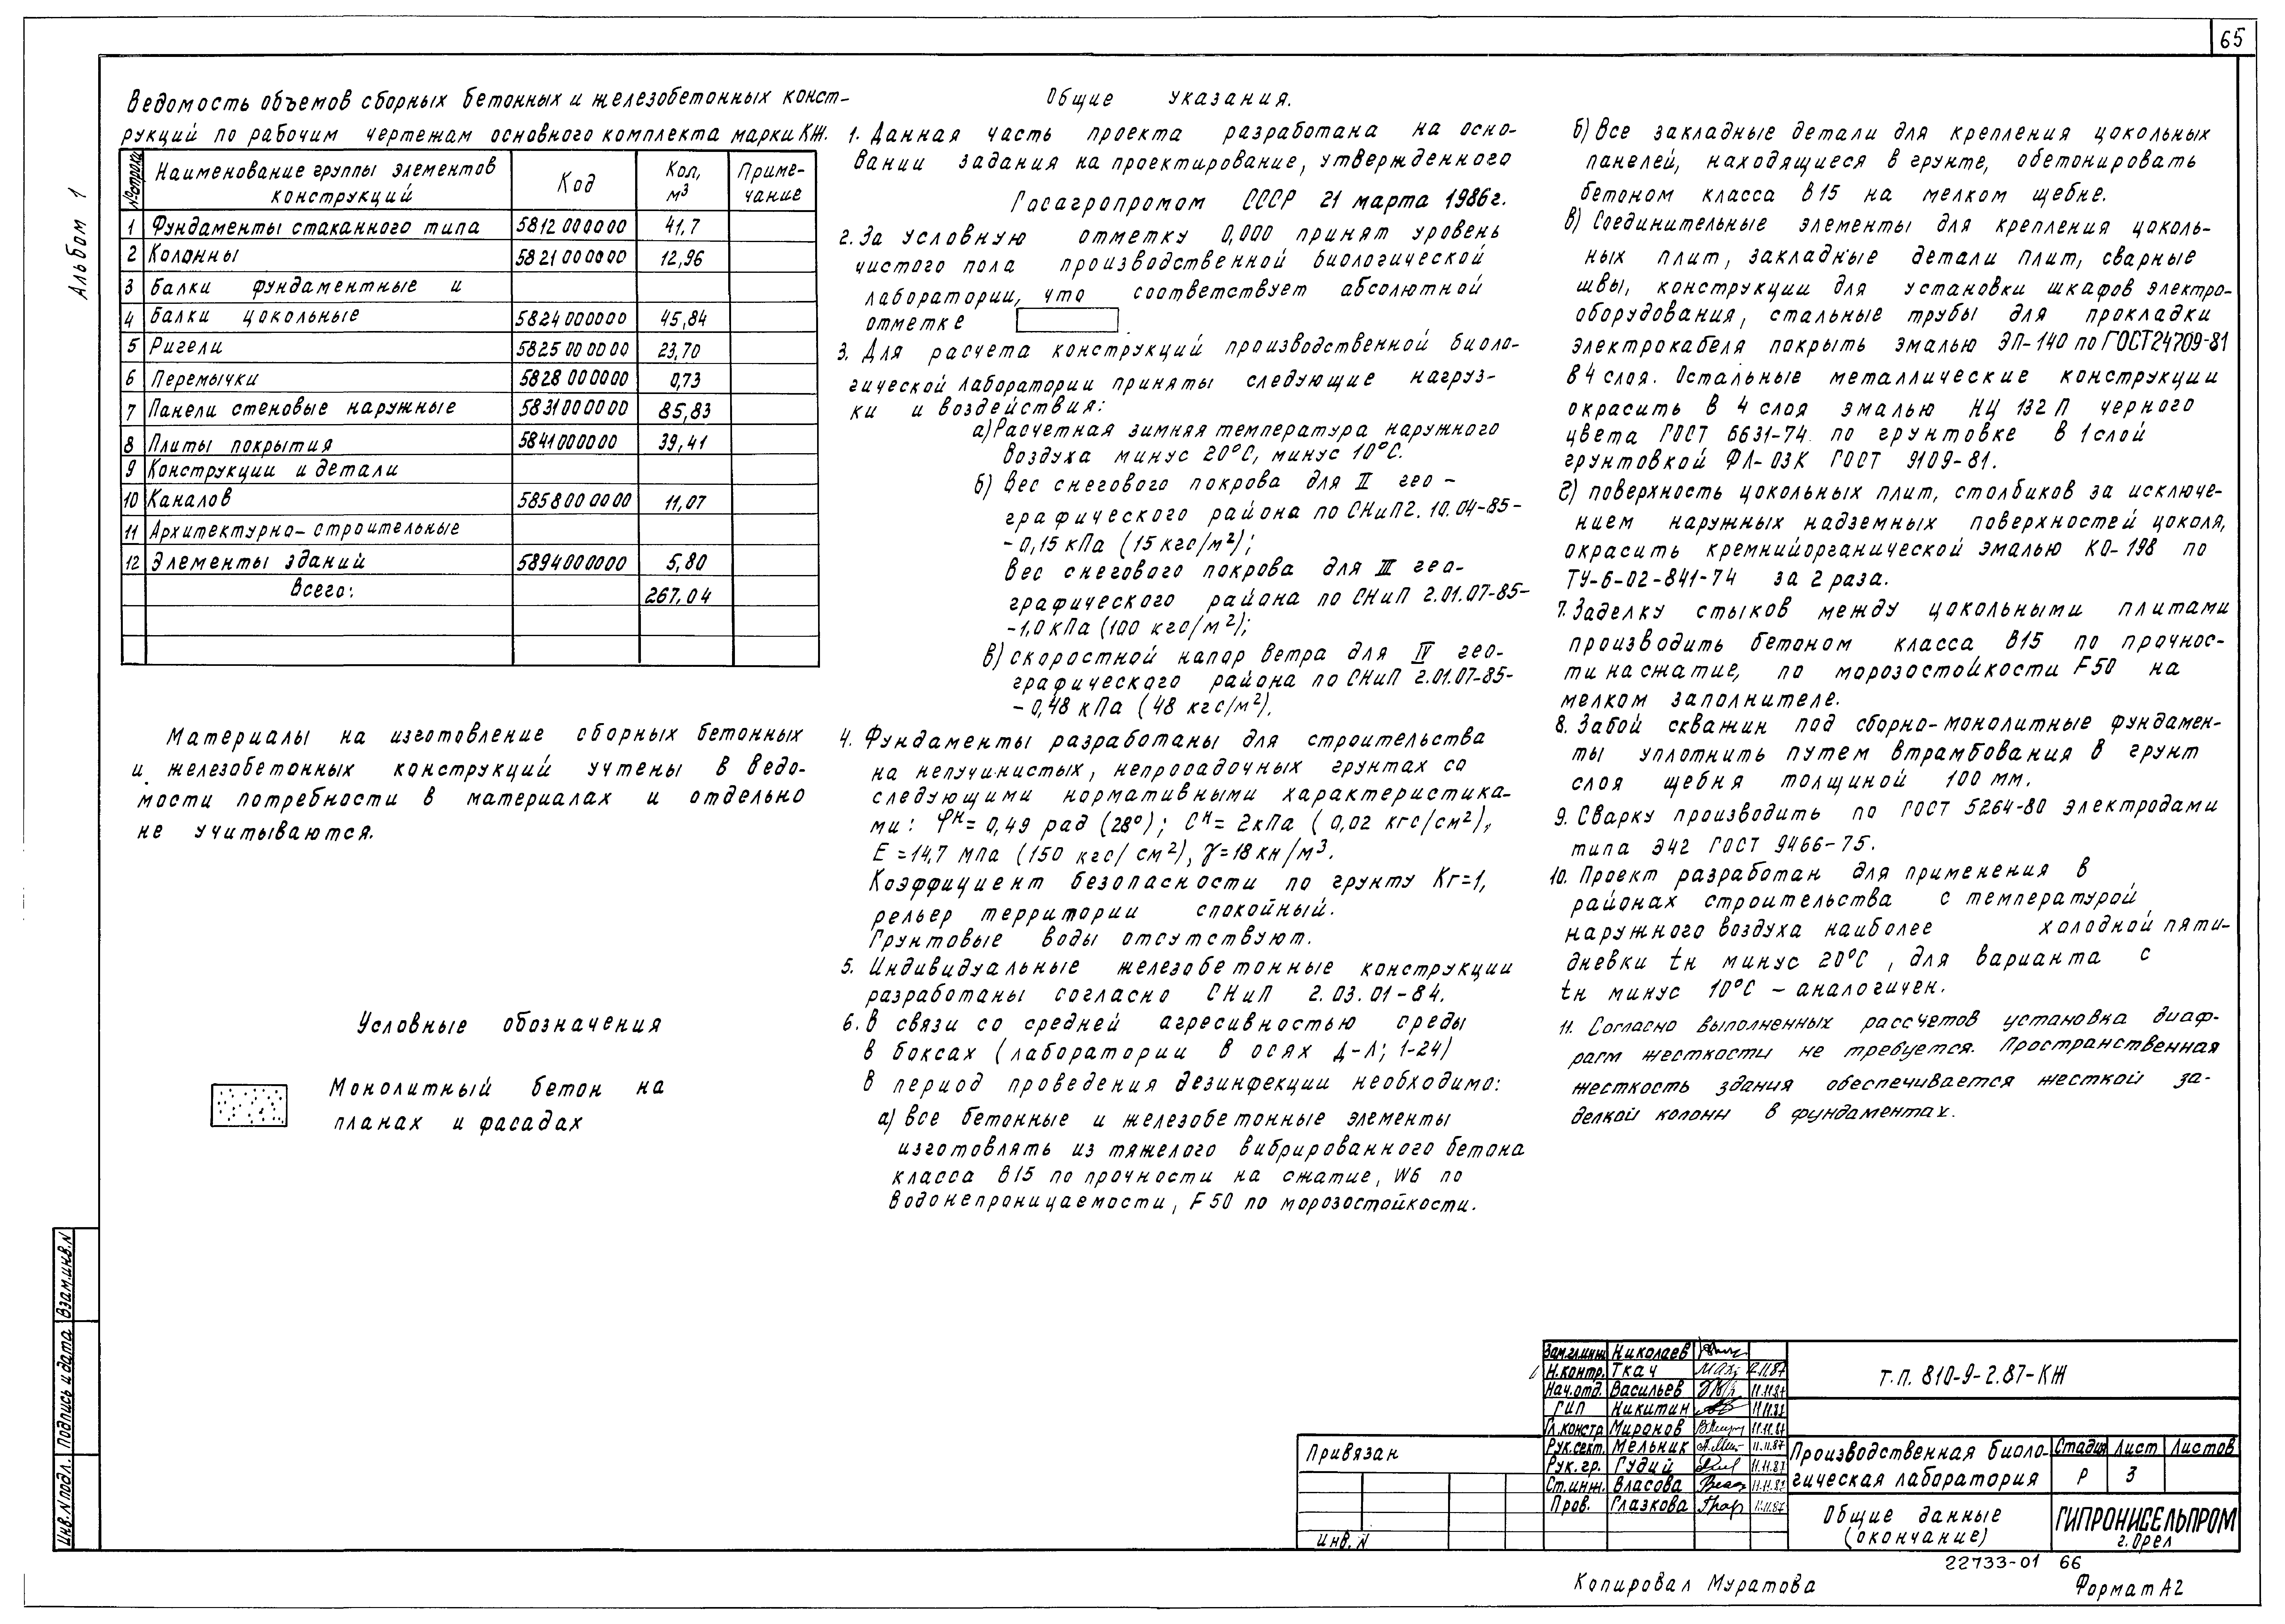 65
Альбом 1
Ведомость объемов сборных бетонных и железобетонных конст-
рукций по рабочим чертежам основного комплекта марки КЖ.
№ строки Наименование группы элементов конструкций Код Кол, м³ Приме-чание
1 Фундаменты стаканного типа 5812 000000 41,7
2 Колонны 5821 000000 12,96
3 Балки фундаментные и
4 Балки цокольные 5824 000000 45,84
5 Ригели 5825 00 00 00 23,70
6 Перемычки 5828 000000 0,73
7 Панели стеновые наружные 5831 000000 85,83
8 Плиты покрытия 5841 000000 39,41
9 Конструкции и детали
10 Каналов 5858 00 0000 11,07
11 Архитектурно-строительные
12 Элементы зданий 5894 000000 5,80
Всего: 267,04
Материалы на изготовление сборных бетонных
и железобетонных конструкций учтены в ведо-
мости потребности в материалах и отдельно
не учитываются.
Условные обозначения
Монолитный бетон на
планах и фасадах
Общие указания.
1. Данная часть проекта разработана на осно-
вании задания на проектирование, утвержденного
Госагропромом СССР 21 марта 1986г.
2. За условную отметку 0,000 принят уровень
чистого пола производственной биологической
лаборатории, что соответствует абсолютной
отметке .
3. Для расчета конструкций производственной биоло-
гической лаборатории приняты следующие нагруз-
ки и воздействия:
а) Расчетная зимняя температура наружного
воздуха минус 20°С, минус 10°С.
б) Вес снегового покрова для II гео-
графического района по СНиП2.10.04-85-
-0,15 кПа (15 кгс/м²);
Вес снегового покрова для III гео-
графического района по СНиП 2.01.07-85-
-1,0 кПа (100 кгс/м²);
в) скоростной напор ветра для IV гео-
графического района по СНиП 2.01.07-85-
- 0,48 кПа (48 кгс/м²).
4. Фундаменты разработаны для строительства
на непучинистых, непросадочных грунтах со
следующими нормативными характеристика-
ми: φн= 0,49 рад (28°); Сн= 2кПа (0,02 кгс/см²),
Е =14,7 мПа (150 кгс/см²), γ=18 кн/м³.
Коэффициент безопасности по грунту Кг=1,
рельер территории спокойный.
Грунтовые воды отсутствуют.
5. Индивидуальные железобетонные конструкции
разработаны согласно СНиП 2.03.01-84.
6. В связи со средней агресивностью среды
в боксах (лаборатории в осях Д-Л; 1-24)
в период проведения дезинфекции необходимо:
а) все бетонные и железобетонные элементы
изготовлять из тяжелого вибрированного бетона
класса В15 по прочности на сжатие, W6 по
водонепроницаемости, F50 по морозостойкости.
б) Все закладные детали для крепления цокольных
панелей, находящиеся в грунте, обетонировать
бетоном класса В15 на мелком щебне.
в) Соединительные элементы для крепления цоколь-
ных плит, закладные детали плит, сварные
швы, конструкции для установки шкафов электро-
оборудования, стальные трубы для прокладки
электрокабеля покрыть эмалью ЭП-140 по ГОСТ24709-81
в 4 слоя. Остальные металлические конструкции
окрасить в 4 слоя эмалью НЦ 132 П черного
цвета ГОСТ 6631-74 по грунтовке в 1 слой
грунтовкой ФЛ-03К ГОСТ 9109-81.
г) поверхность цокольных плит, столбиков за исключе-
нием наружных надземных поверхностей цоколя,
окрасить кремнийорганической эмалью КО-198 по
ТУ-6-02-841-74 за 2 раза.
7. Заделку стыков между цокольными плитами
производить бетоном класса В15 по прочнос-
ти на сжатие, по морозостойкости F50 на
мелком заполнителе.
8. Забой скважин под сборно-монолитные фундамен-
ты уплотнить путем втрамбования в грунт
слоя щебня толщиной 100 мм.
9. Сварку производить по ГОСТ 5264-80 электродами
типа Э42 ГОСТ 9466-75.
10. Проект разработан для применения в
районах строительства с температурой
наружного воздуха наиболее холодной пяти-
дневки tн минус 20°С , для варианта с
tн минус 10°С - аналогичен.
11. Согласно выполненных рассчетов установка диаф-
рагм жесткости не требуется. Пространственная
жесткость здания обеспечивается жесткой за-
делкой колонн в фундаментах.
Инв. N подл. Подпись и дата Взам.инв.N
Привязан
Инв. N
Зам.гл.инж Николаев
Н.контр. Ткач 2.11.87
Нач.отд. Васильев 11.11.87
ГИП Никитин 11.11.87
Гл.констр Миронов 11.11.87
Рук.сект. Мельник 11.11.87
Рук.гр. Гудий 11.11.87
Ст.инж. Власова 11.11.87
Пров. Глазкова 11.11.87
Т.П. 810-9-2.87-КЖ
Производственная биоло-
гическая лаборатория
Стадия Лист Листов
Р 3
Общие данные
(окончание)
ГИПРОНИСЕЛЬПРОМ
г. Орел
22733-01 66
Копировал Муратова
Формат А2